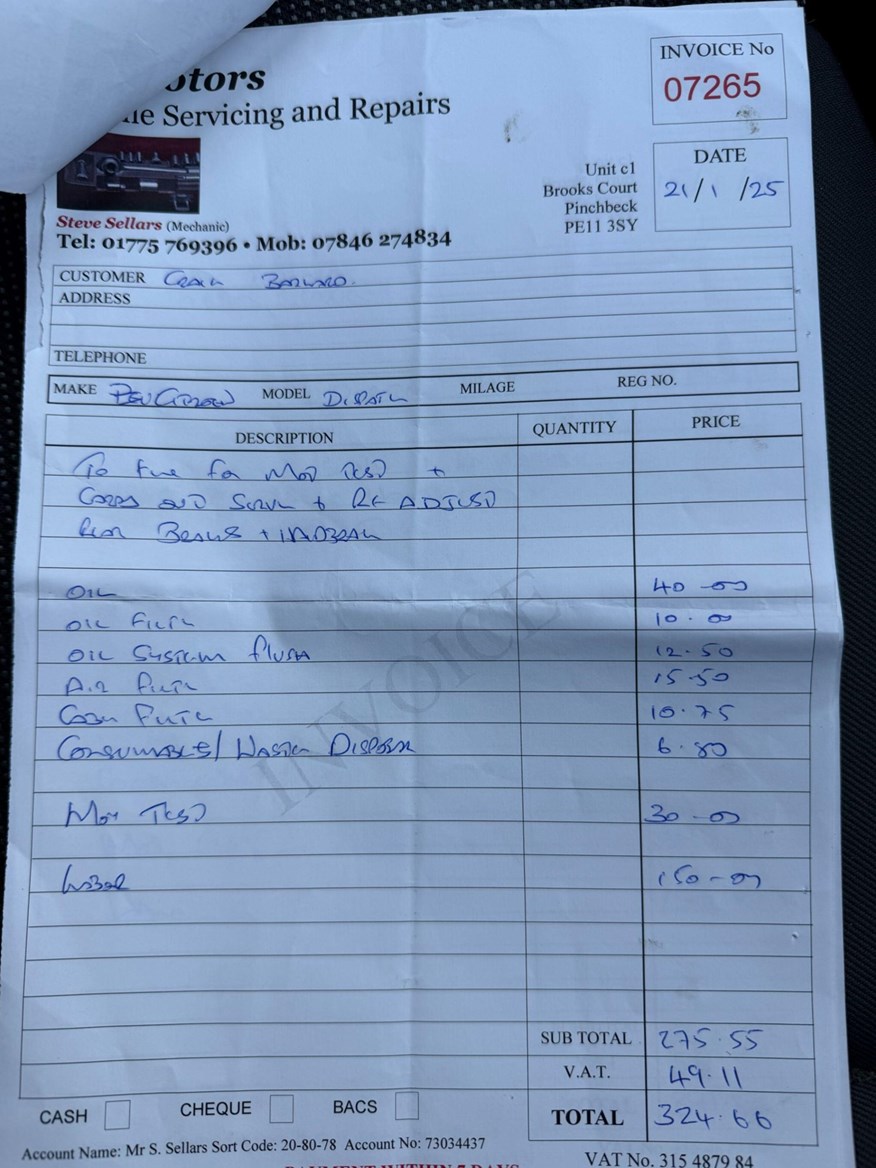 otors
Servicing and Repairs
INVOICE No
07265
DATE
21/1/25
Unit c1
Brooks Court
Pinchbeck
PE11 3SY
Steve Sellars (Mechanic)
Tel: 01775 769396 • Mob: 07846 274834
CUSTOMER
ADDRESS
TELEPHONE
MAKE MODEL Dispatch MILAGE REG NO.
DESCRIPTION QUANTITY PRICE
for Mot Test +
and + ADJUST
OIL 40-00
OIL Filter 10.00
OIL System flush 12.50
Air filter 15.50
Filter 10.75
Consumables/Waste Disposal 6.80
Mot Test 30-00
Labour 150-00
INVOICE
SUB TOTAL 275.55
V.A.T. 49.11
TOTAL 324.66
CASH CHEQUE BACS
Account Name: Mr S. Sellars Sort Code: 20-80-78 Account No: 73034437
VAT No. 315 4879 84
PAYMENT WITHIN 7 DAYS